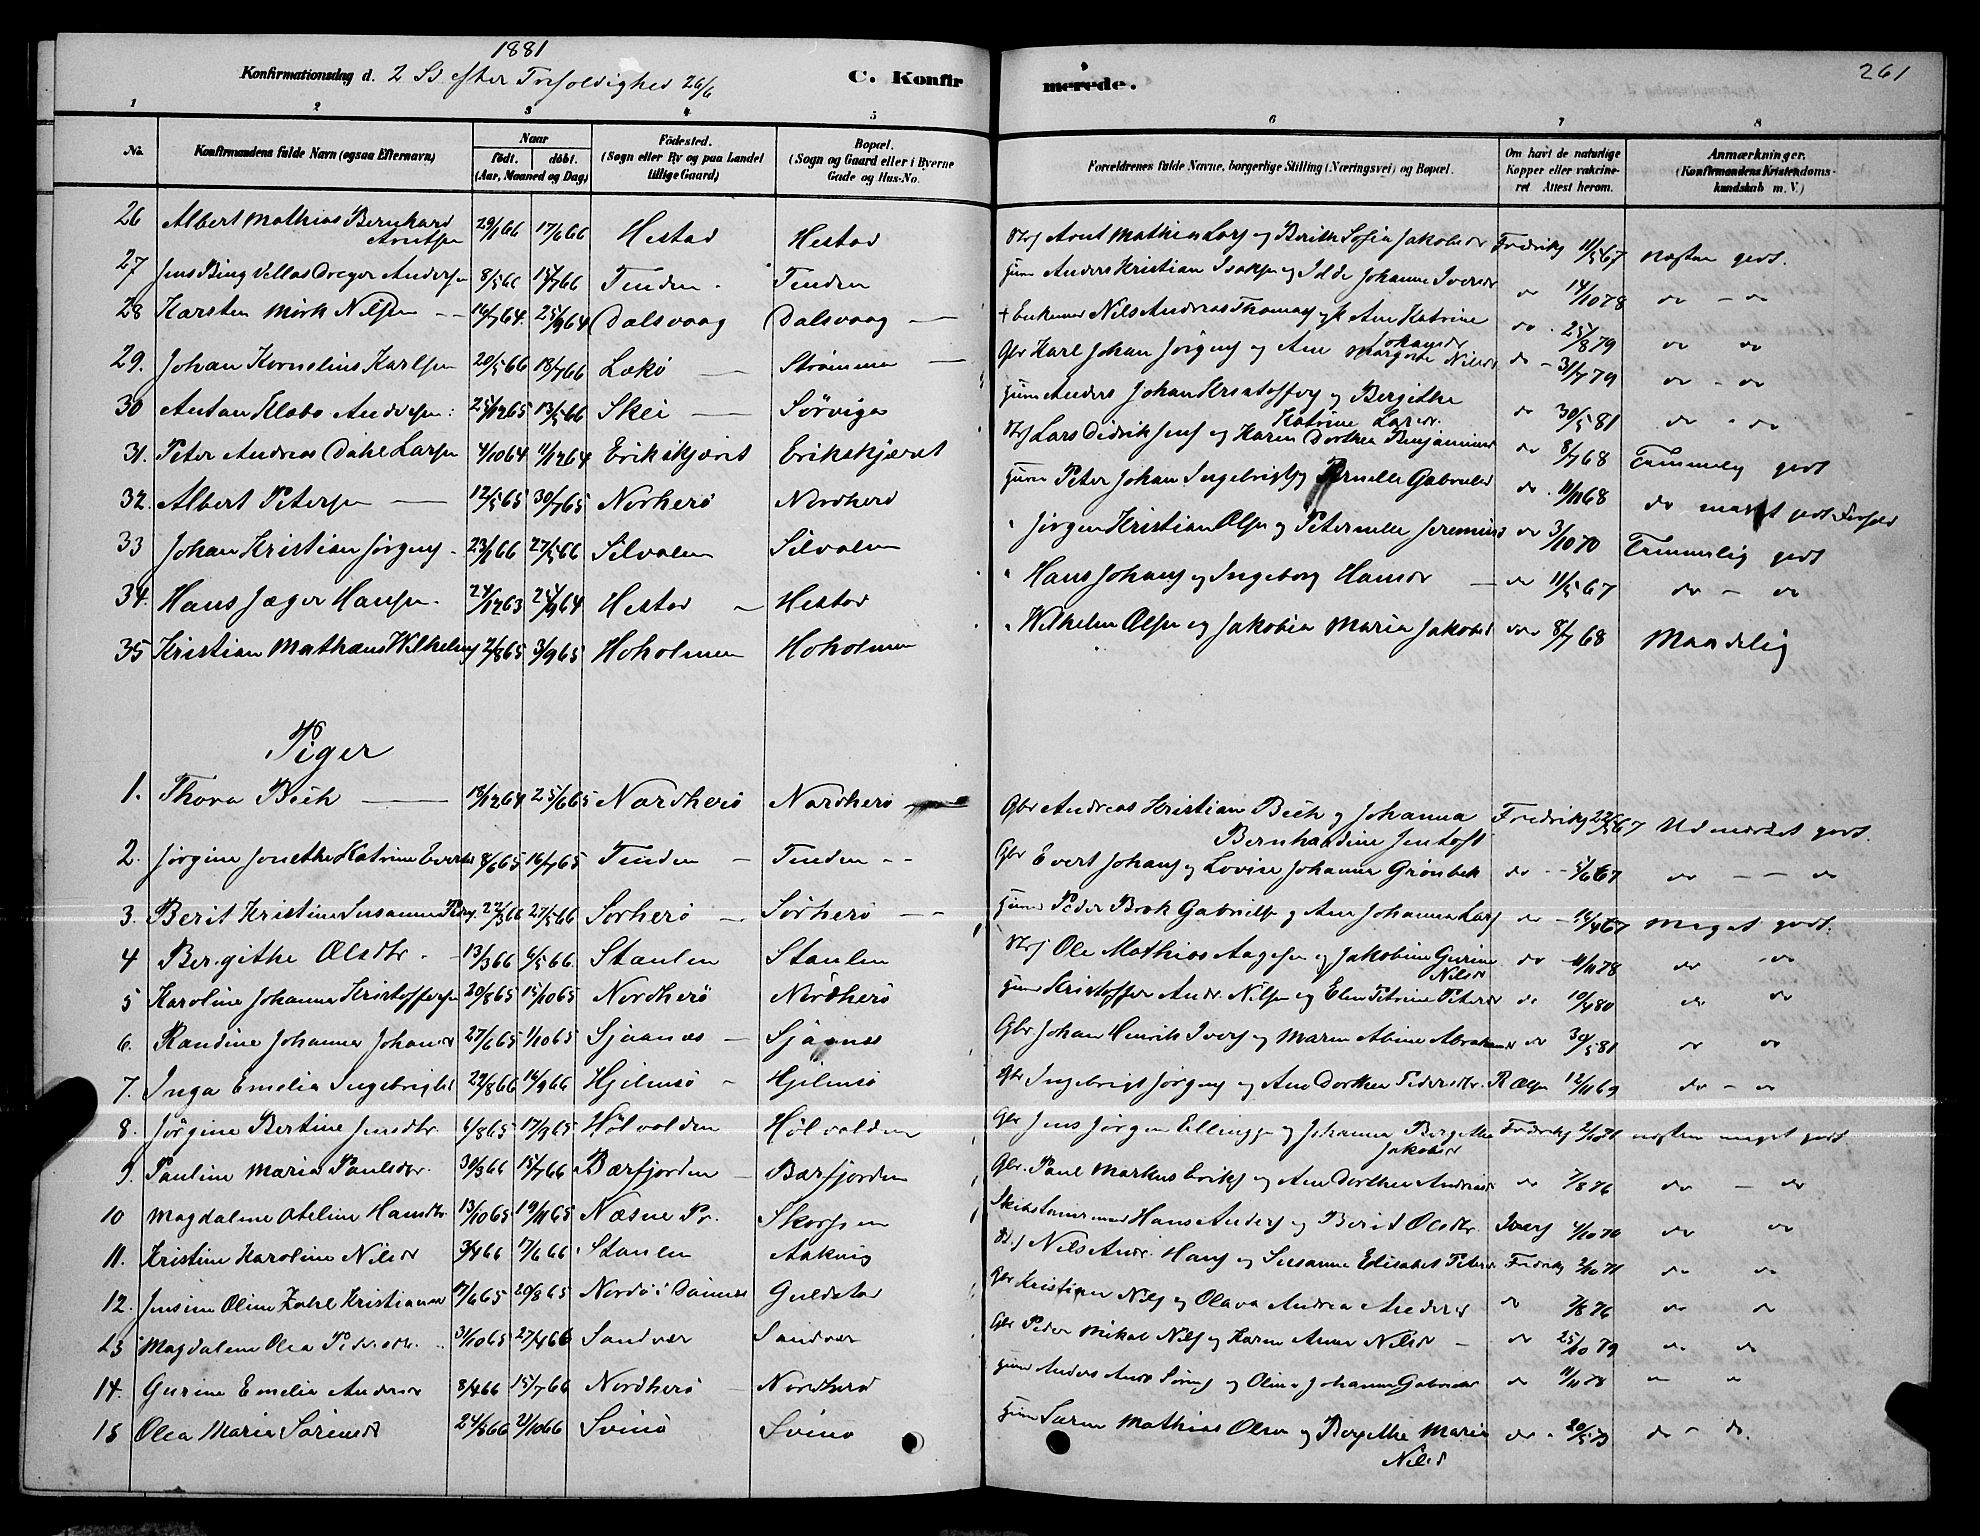 1881
Konfirmationsdag d. 2 Sd efter Trefoldighed 26/6 C. Konfir merede. 261
1 2 3 4 5 6 7 8
No. Konfirmandens fulde Navn (ogsaa Efternavn) Naar födt. döbt. (Aar, Maaned og Dag) Födested. (Sogn eller By og paa Landet tillige Gaard) Bopæl. (Sogn og Gaard eller i Byerne Gade og Hus-No. Forældrenes fulde Navne, borgerlige Stilling (Næringsvei) og Bopæl. Om havt de naturlige Kopper eller vakcineret Attest herom. Anmærkninger. (Konfirmandens Kristendomskundskab m. V.)
26 Albert Mathias Bernhard Arntsen 29/1 66 17/6 66 Hestad Hestad Arnt Mathias Lars og Berith Sofia Jakobsdr Fredriks 11/5 67 næsten godt.
27 Jens Bing Dreyer Andersen 8/5 66 15/7 66 Tenden Tenden Anders Kristian Isaksen og Johanna Iversdr do 14/10 78 do - do
28 Karsten Mörk Nilsen 14/7 64 25/9 64 Dalsvaag Dalsvaag Nils Andreas Thomas Ane Katrine Johansdr do 25/8 79 do do
29. Johan Kornelius Karlsen 20/5 66 18/7 66 Lökö Strömmen Gbr Karl Johan Jörgens og Ane Margrete Nilsdr do - 31/7 79 do - do
30 Anton Klæbo Andersen 25/12 65 13/5 66 Skei Sörvigen Anders Johan Kristoffers og Bergithe Katrine Larsdr. do 30/5 81 do - do
31. Peter Andreas Dahl Larsen 4/10 64 11/12 64 Erikskjæret Erikskjæret Lars Didrik Jens og Karen Dorthea Benjaminsd do 8/7 68 Temmelig godt
32. Albert Petersen 12/5 65 30/7 65 Norherö Nordherö Peter Johan Ingebrigts og Pernille Gabrielsd do 11/11 68 do
33 Johan Kristian Jörgens 23/1 66 27/5 66 Silvalen Silvalen Jörgen Kristian Olsen og Peternelle Jeremiasd do 3/10 70 Temmelig godt
34. Hans Jæger Hansen 24/12 63 24/9 64 Hestad Hestad Hans Johans og Ingeborg Hansdr do 11/5 67 do - do
35 Kristian Mathæus Wilhelms 2/8 65 3/9 65 Hoholmen Hoholmen Wilhelm Olsen og Jakobia Maria Jakobsd do 8/7 68 Maadelig
Piger
1. Thora Bech 18/12 64 25/6 65 Nordherö Nordherö Gbr Andreas Kristian Bech og Johanna Bernhardine Jentoft Fredriks 67 Udmærket godt.
2. Jörgine Jonette Katrine Everts 8/6 65 16/7 65 Tenden Tenden Gbr Evert Johans og Lovise Johanna Grönbek do 67 do - - do
3. Berit Kristine Susanna Peders 22/3 66 27/5 66 Sörherö Sörherö Peder Brok Gabrielsen og Ane Johanna Lars do 14/4 67 Meget godt.
4 Bergithe Olsdtr. 13/3 66 6/5 66 Staulen Staulen Ole Mathias Aagesen og Jakobine Gurine Nilsd do 11/11 78 do do
5 Karoline Johanna Kristoffersen 20/8 65 15/10 65 Nordherö Nordherö Kristoffer Andr. Nilsen og Elen Petrine Petersdr do 10/4 80 do do
6. Randine Johanna Johansd 27/6 65 1/10 65 Sjaanæs Sjaanæs Gbr. Johan Henrik Ivers og Maren Abine Abrahamsd do 30/5 81 do do
7. Inga Emelia Ingebrigtsd 29/8 66 16/9 66 Hjelmsö Hjelmsö Gbr Ingebrigt Jörgens og Ane Dorthea Pedersdtr. R Olsen 12/11 69 do - do
8. Jörgine Bertine Jensdtr. 6/8 65 17/9 65 Hölvalden Hölvalden Gbr Jens Jörgen Ellingsen og Johanna Bergithe Jakobsdr Fredriks 2/10 71 næsten meget godt
9. Pauline Maria Paulsdtr. 30/3 66 15/7 66 Bærfjorden Bærfjorden Gbr. Paul Markus Eriks og Ane Dorthea Andreasdr do 7/8 76 do - do
10 Magdalene Oteline Hansdtr 13/10 65 19/11 65 Næsne Pr. Skorpen Hans Anders og Berit Olsdtr. Ivers 4/10 70 do do
11. Kristine Karoline Nilsdr 3/4 66 17/6 66 Staulen Aakvig Nils Andr. Hans og Susanne Elisabet Petersd Fredriks 2/10 71 do do
12. Jensine Oline Zahl Kristiansd 17/6 65 20/8 65 Nordö i Dönnes Guldstad Gbr Kristian Nils og Olava Andrea Andersd do 7/8 76 do do
13 Magdalene Olea Pedersdtr. 31/10 65 27/4 66 Sandvær Sandvær Gbr Peder Mikal Nils og Karen Anna Nilsd do 25/10 79 do do
14. Gurine Emelia Andersd 8/4 66 15/7 66 Nordherö Nordherö Anders Andr Sörens og Oline Johanna Gabrielsdr do 11/11 78 " "
15 Olea Maria Sörensd 24/3 66 21/10 66 Svinö Svinö Sören Mathias Olsen og Bergithe Maria Nilsd do 20/5 73 do - do.